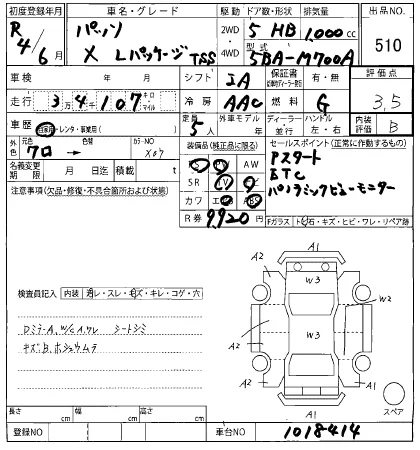 初度登録年月 車名・グレード 駆動 ドア数・形状 排気量 出品NO.
R 4/6月 パッソ X Lパッケージ TSS 2WD 4WD 5 HB 1,000cc 510
型式 5BA-M700A
車検 年 月 シフト IA 保証書 有・無 評価点
走行 3万4千107 キロ マイル 冷房 AAC 燃料 G 3.5
車歴 自家用・レンタ・事業用( ) 定員 5人 外車モデル 年 ディーラー 並行 ハンドル 左・右 内装評価 B
外色 元色 クロ→ 色替 カラーNO X07
装備品(純正品に限る) セールスポイント(正常に作動するもの)
名義変更期限 月 日迄 積載 t
PS PW AW Pスタート
SR TV ナビ ETC
カワ エアB ABS パノラミックビューモニター
注意事項(欠品・修復・不具合箇所および状態)
R券 9,920円
Fガラス トビ石・キズ・ヒビ・ワレ・リペア跡
A1
A2 A2
W3
W2
W3
A2 A2
A1
スペア
検査員記入 内装 汚レ・スレ・キズ・キレ・コゲ・穴
DミラーA, W/C A, サレ シートシミ
キズ, B, ホシュウムラ
長さ cm 幅 cm 高さ cm
登録NO 車台NO 1018414